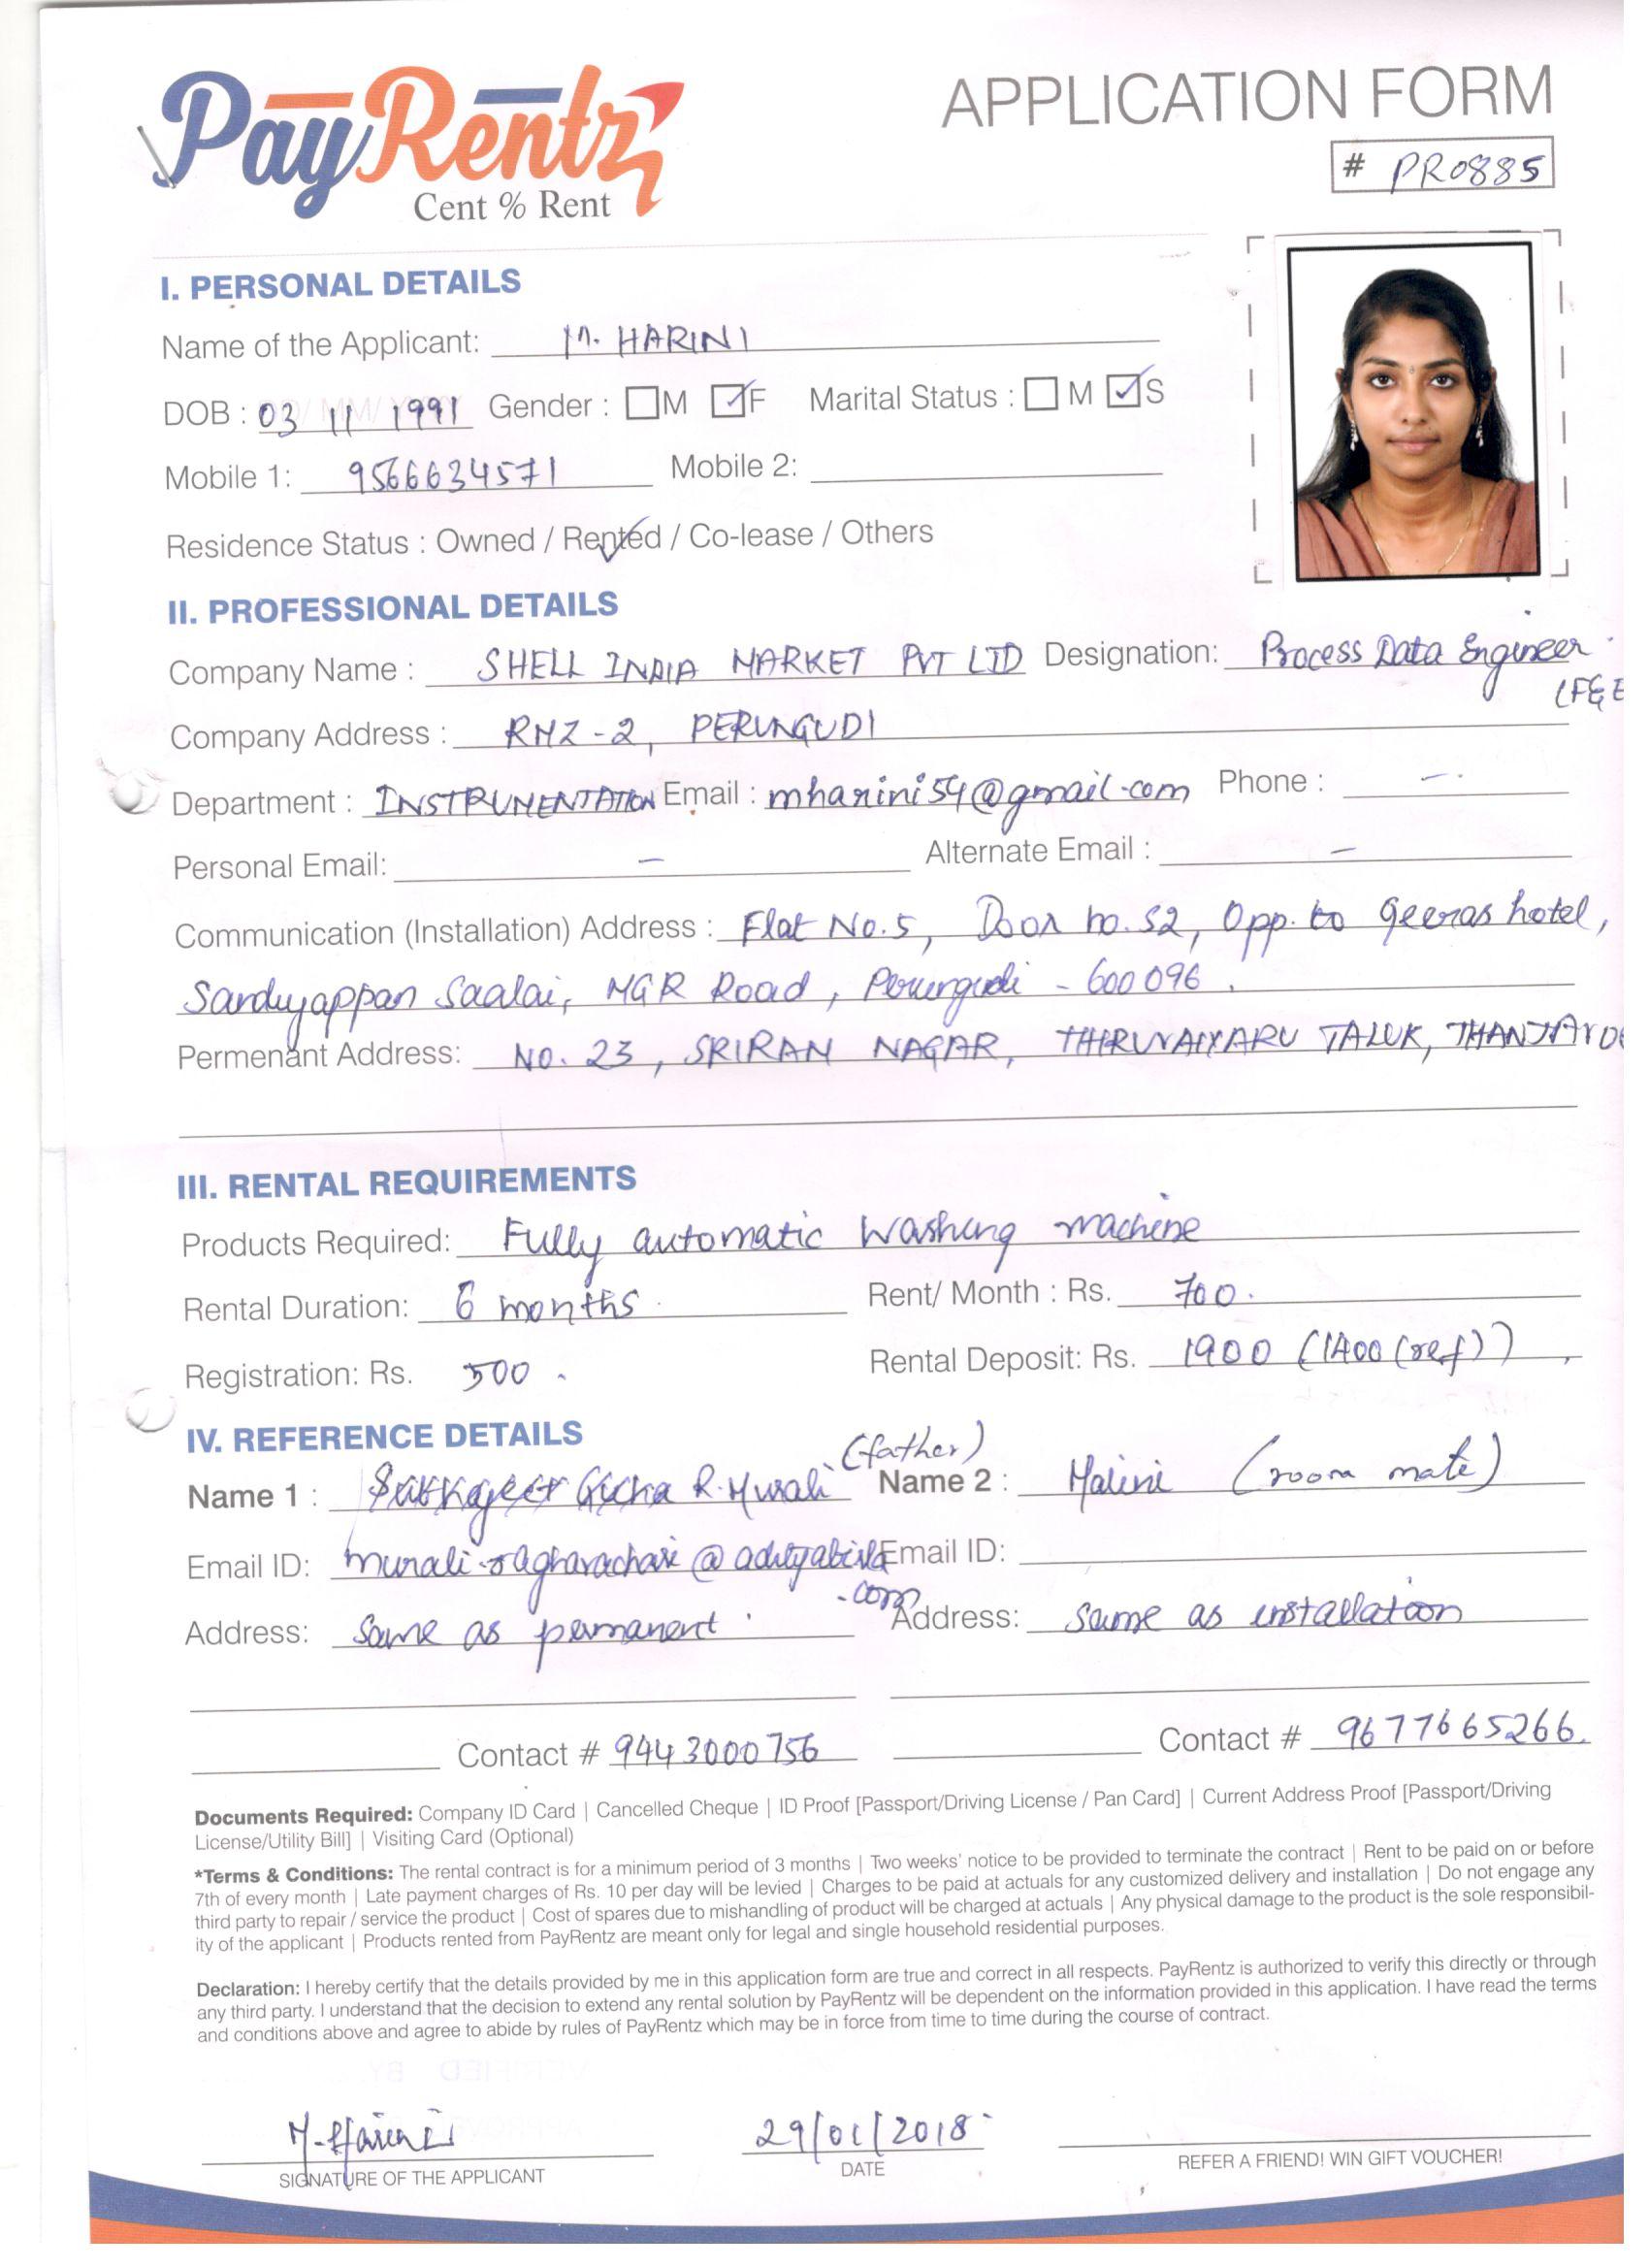 PayRentz
Cent % Rent
APPLICATION FORM
# PR0885
I. PERSONAL DETAILS
Name of the Applicant: M. HARINI
DOB : 03 11 1991 Gender : M F Marital Status : M S
Mobile 1: 9566634571 Mobile 2:
Residence Status : Owned / Rented / Co-lease / Others
II. PROFESSIONAL DETAILS
Company Name : SHELL INDIA MARKET PVT LTD Designation: Process Data Engineer
Company Address : RMZ-2, PERUNGUDI
Department : INSTRUMENTATION Email : mharini54@gmail.com Phone : -
Personal Email: - Alternate Email : -
Communication (Installation) Address : Flat No.5, Door no. 52, Opp. to Geeras hotel,
Saalai, MGR Road, Perungudi - 600096.
Permenant Address: NO. 23, SRIRAM NAGAR, THIRUVAIYARU TALUK,
III. RENTAL REQUIREMENTS
Products Required: Fully automatic Washing machine
Rental Duration: 6 months. Rent/ Month : Rs. 700.
Registration: Rs. 500. Rental Deposit: Rs. 1900 (1400 (ref))
IV. REFERENCE DETAILS
Name 1 : R. Murali (father) Name 2 : Malini (room mate)
Email ID: murali.ragharachari@adityabirla.com Email ID:
Address: Same as permanent. Address: Same as installation
Contact # 9443000756 Contact # 9677665266.
Documents Required: Company ID Card | Cancelled Cheque | ID Proof [Passport/Driving License / Pan Card] | Current Address Proof [Passport/Driving
License/Utility Bill] | Visiting Card (Optional)
*Terms & Conditions: The rental contract is for a minimum period of 3 months | Two weeks' notice to be provided to terminate the contract | Rent to be paid on or before
7th of every month | Late payment charges of Rs. 10 per day will be levied | Charges to be paid at actuals for any customized delivery and installation | Do not engage any
third party to repair / service the product | Cost of spares due to mishandling of product will be charged at actuals | Any physical damage to the product is the sole responsibil-
ity of the applicant | Products rented from PayRentz are meant only for legal and single household residential purposes.
Declaration: I hereby certify that the details provided by me in this application form are true and correct in all respects. PayRentz is authorized to verify this directly or through
any third party. I understand that the decision to extend any rental solution by PayRentz will be dependent on the information provided in this application. I have read the terms
and conditions above and agree to abide by rules of PayRentz which may be in force from time to time during the course of contract.
M. Harini 29/01/2018
SIGNATURE OF THE APPLICANT DATE REFER A FRIEND! WIN GIFT VOUCHER!